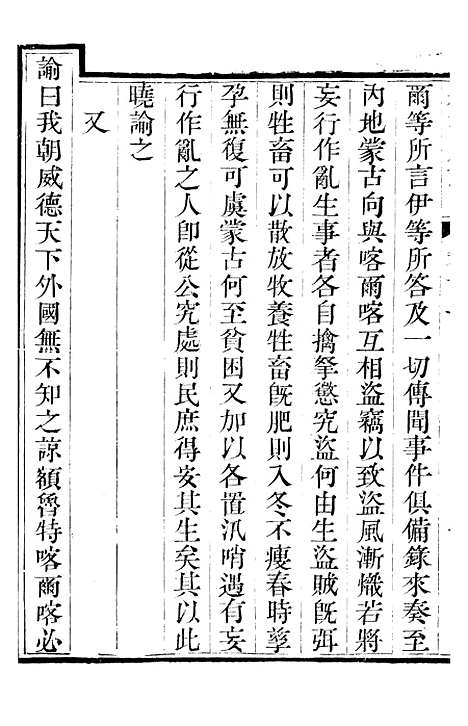 爾等所言伊等所答及一切傳聞事件俱備錄來奏至
內地蒙古向與喀爾喀互相盜竊以致盜風漸熾若將
妄行作亂生事者各自擒拏懲究盜何由生盜賊旣弭
則牲畜可以散放牧養牲畜旣肥則入冬不瘦春時孳
孕無復可虞蒙古何至貧困又加以各置汛哨遇有妄
行作亂之人卽從公究處則民庶得安其生矣其以此
曉諭之
又
諭曰我朝威德天下外國無不知之諒額魯特喀爾喀必